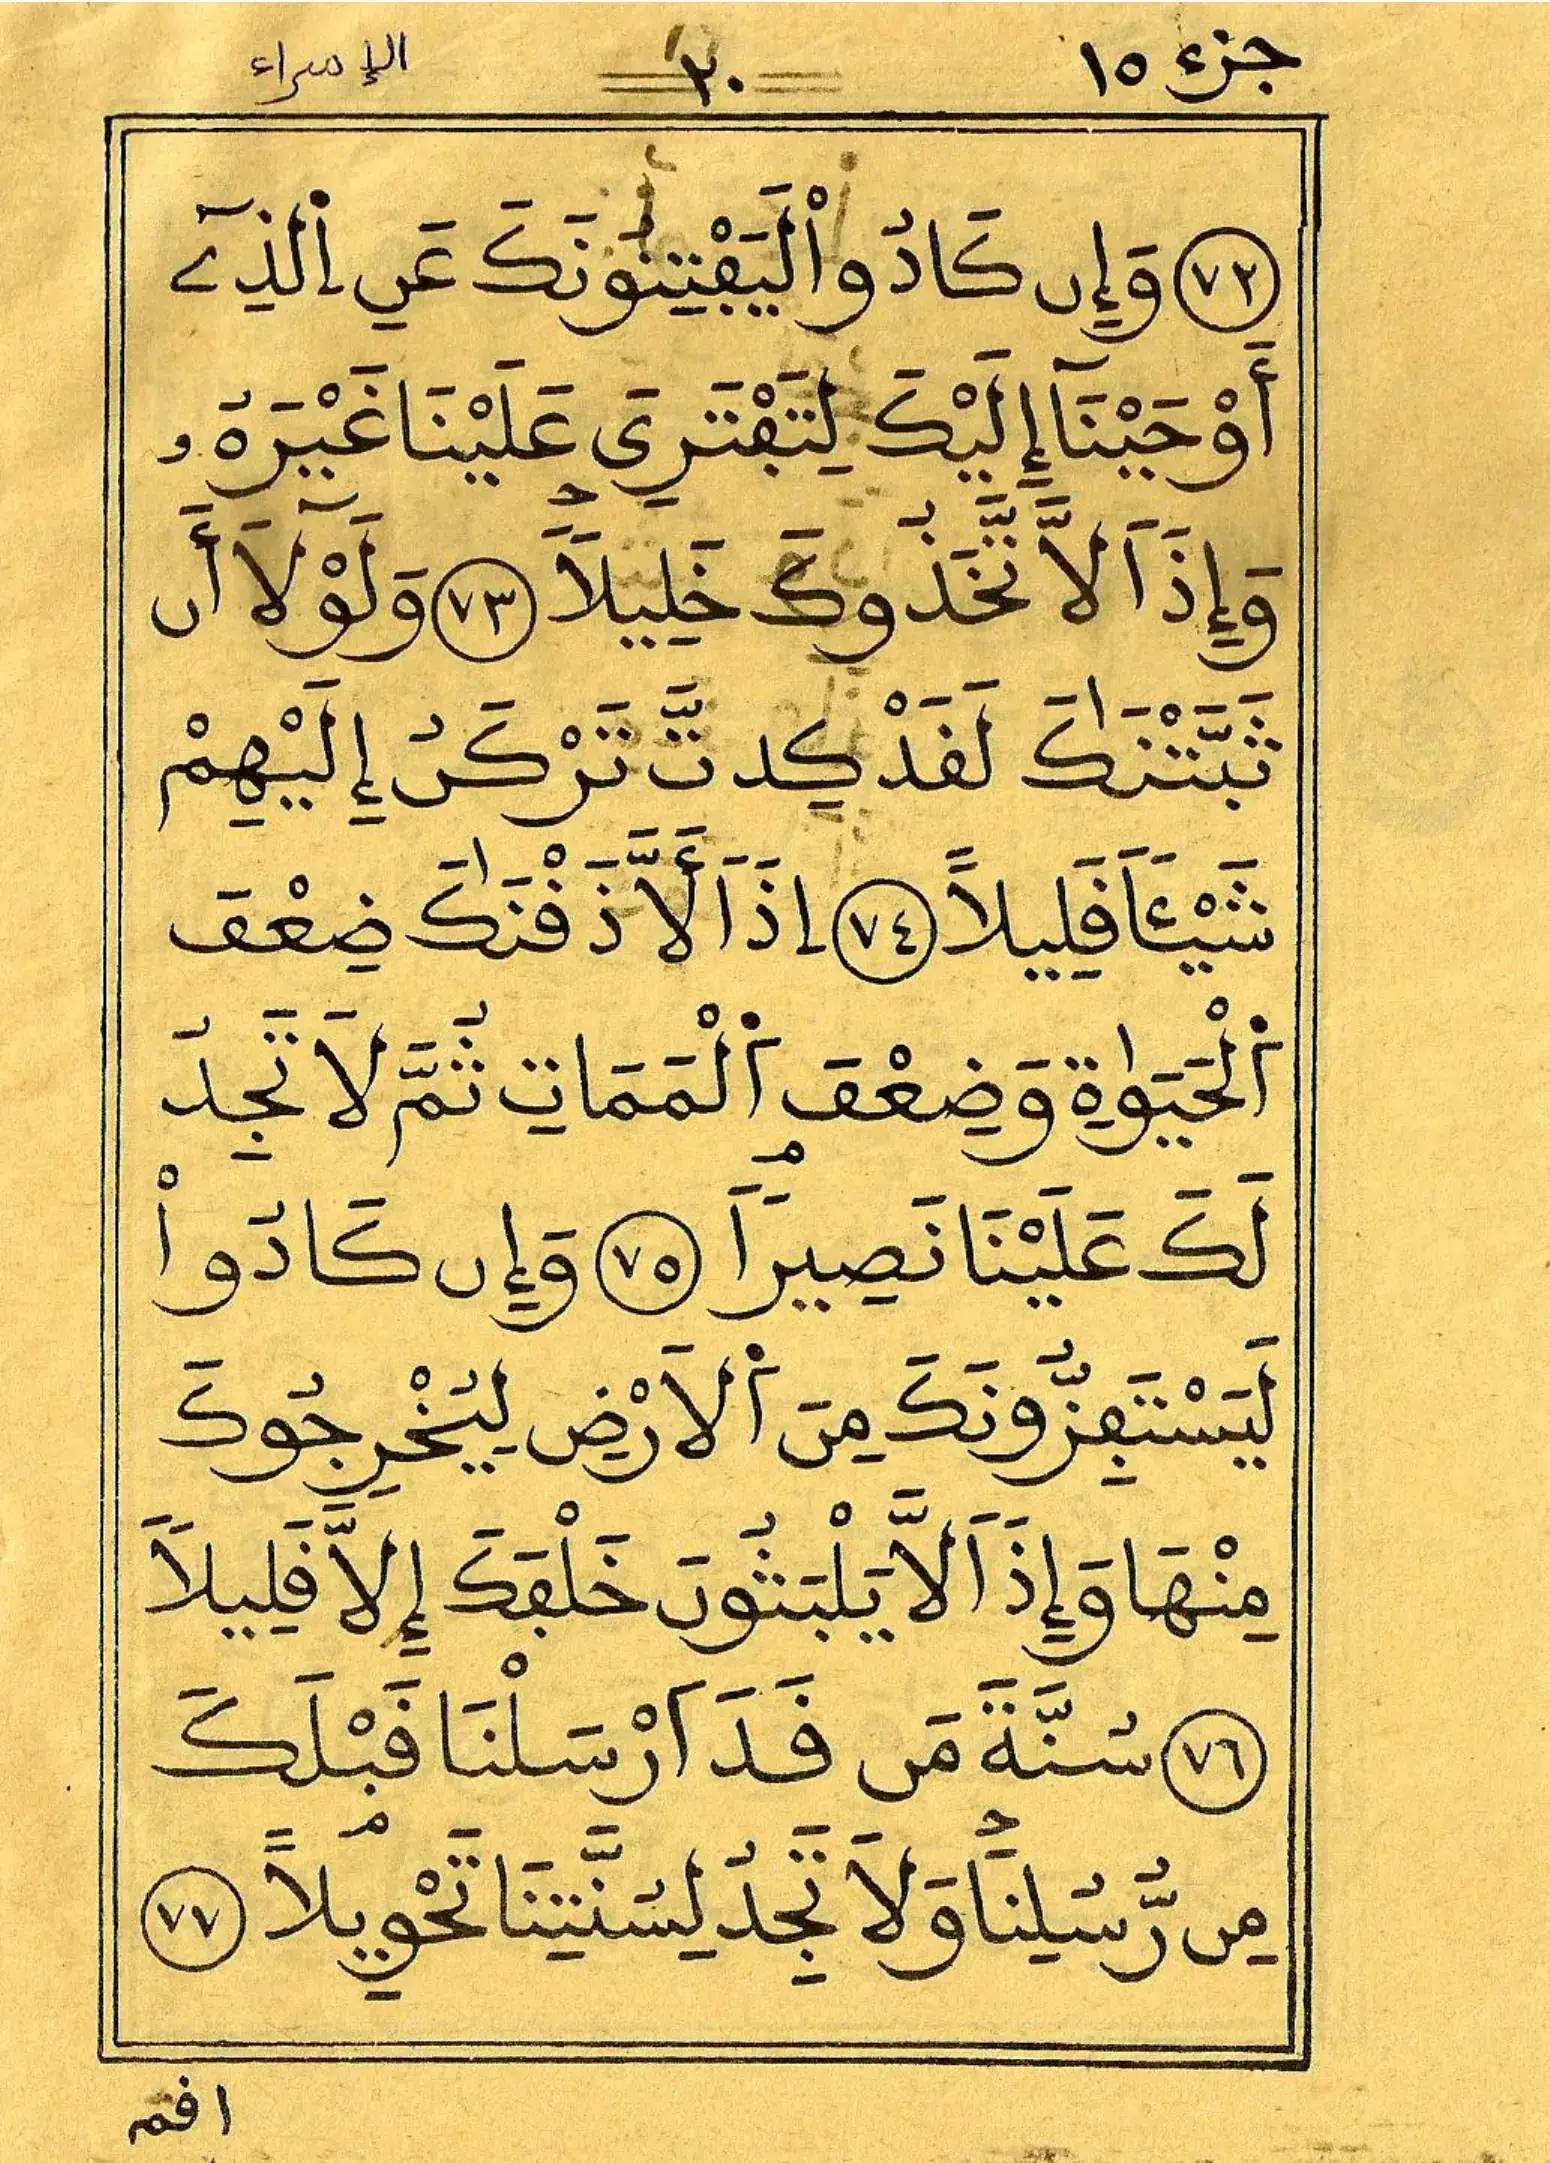 جزء ١٥
٢٠
الإسراء
٧٢ وَإِن كَادُواْ لَيَفْتِنُونَكَ عَنِ اِ۬لذِےٓ
أَوْحَيْنَآ إِلَيْكَ لِتَفْتَرِىَ عَلَيْنَا غَيْرَهُۥ
وَإِذاَ لاَّتَّخَذُوكَ خَلِيلاَۖ ٧٣ وَلَوْلَآ أَن
ثَبَّتْنَٰكَ لَقَدْ كِدتَّ تَرْكَنُ إِلَيْهِمْ
شَيْـٔاَ قَلِيلاً ٧٤ اِذاَ لَّأَذَقْنَٰكَ ضِعْفَ
اَ۬لْحَيَوٰةِ وَضِعْفَ اَ۬لْمَمَاتِ ثُمَّ لاَ تَجِدُ
لَكَ عَلَيْنَا نَصِيراَۢ ٧٥ وَإِن كَادُواْ
لَيَسْتَفِزُّونَكَ مِنَ اَ۬لَارْضِ لِيُخْرِجُوكَ
مِنْهَا وَإِذاَ لاَّ يَلْبَثُونَ خَلْفَكَ إِلاَّ قَلِيلاَ
٧٦ سُنَّةَ مَن قَدَ اَرْسَلْنَا قَبْلَكَ
مِن رُّسُلِنَاۖ وَلاَ تَجِدُ لِسُنَّتِنَا تَحْوِيلاًۢ ٧٧
اقم